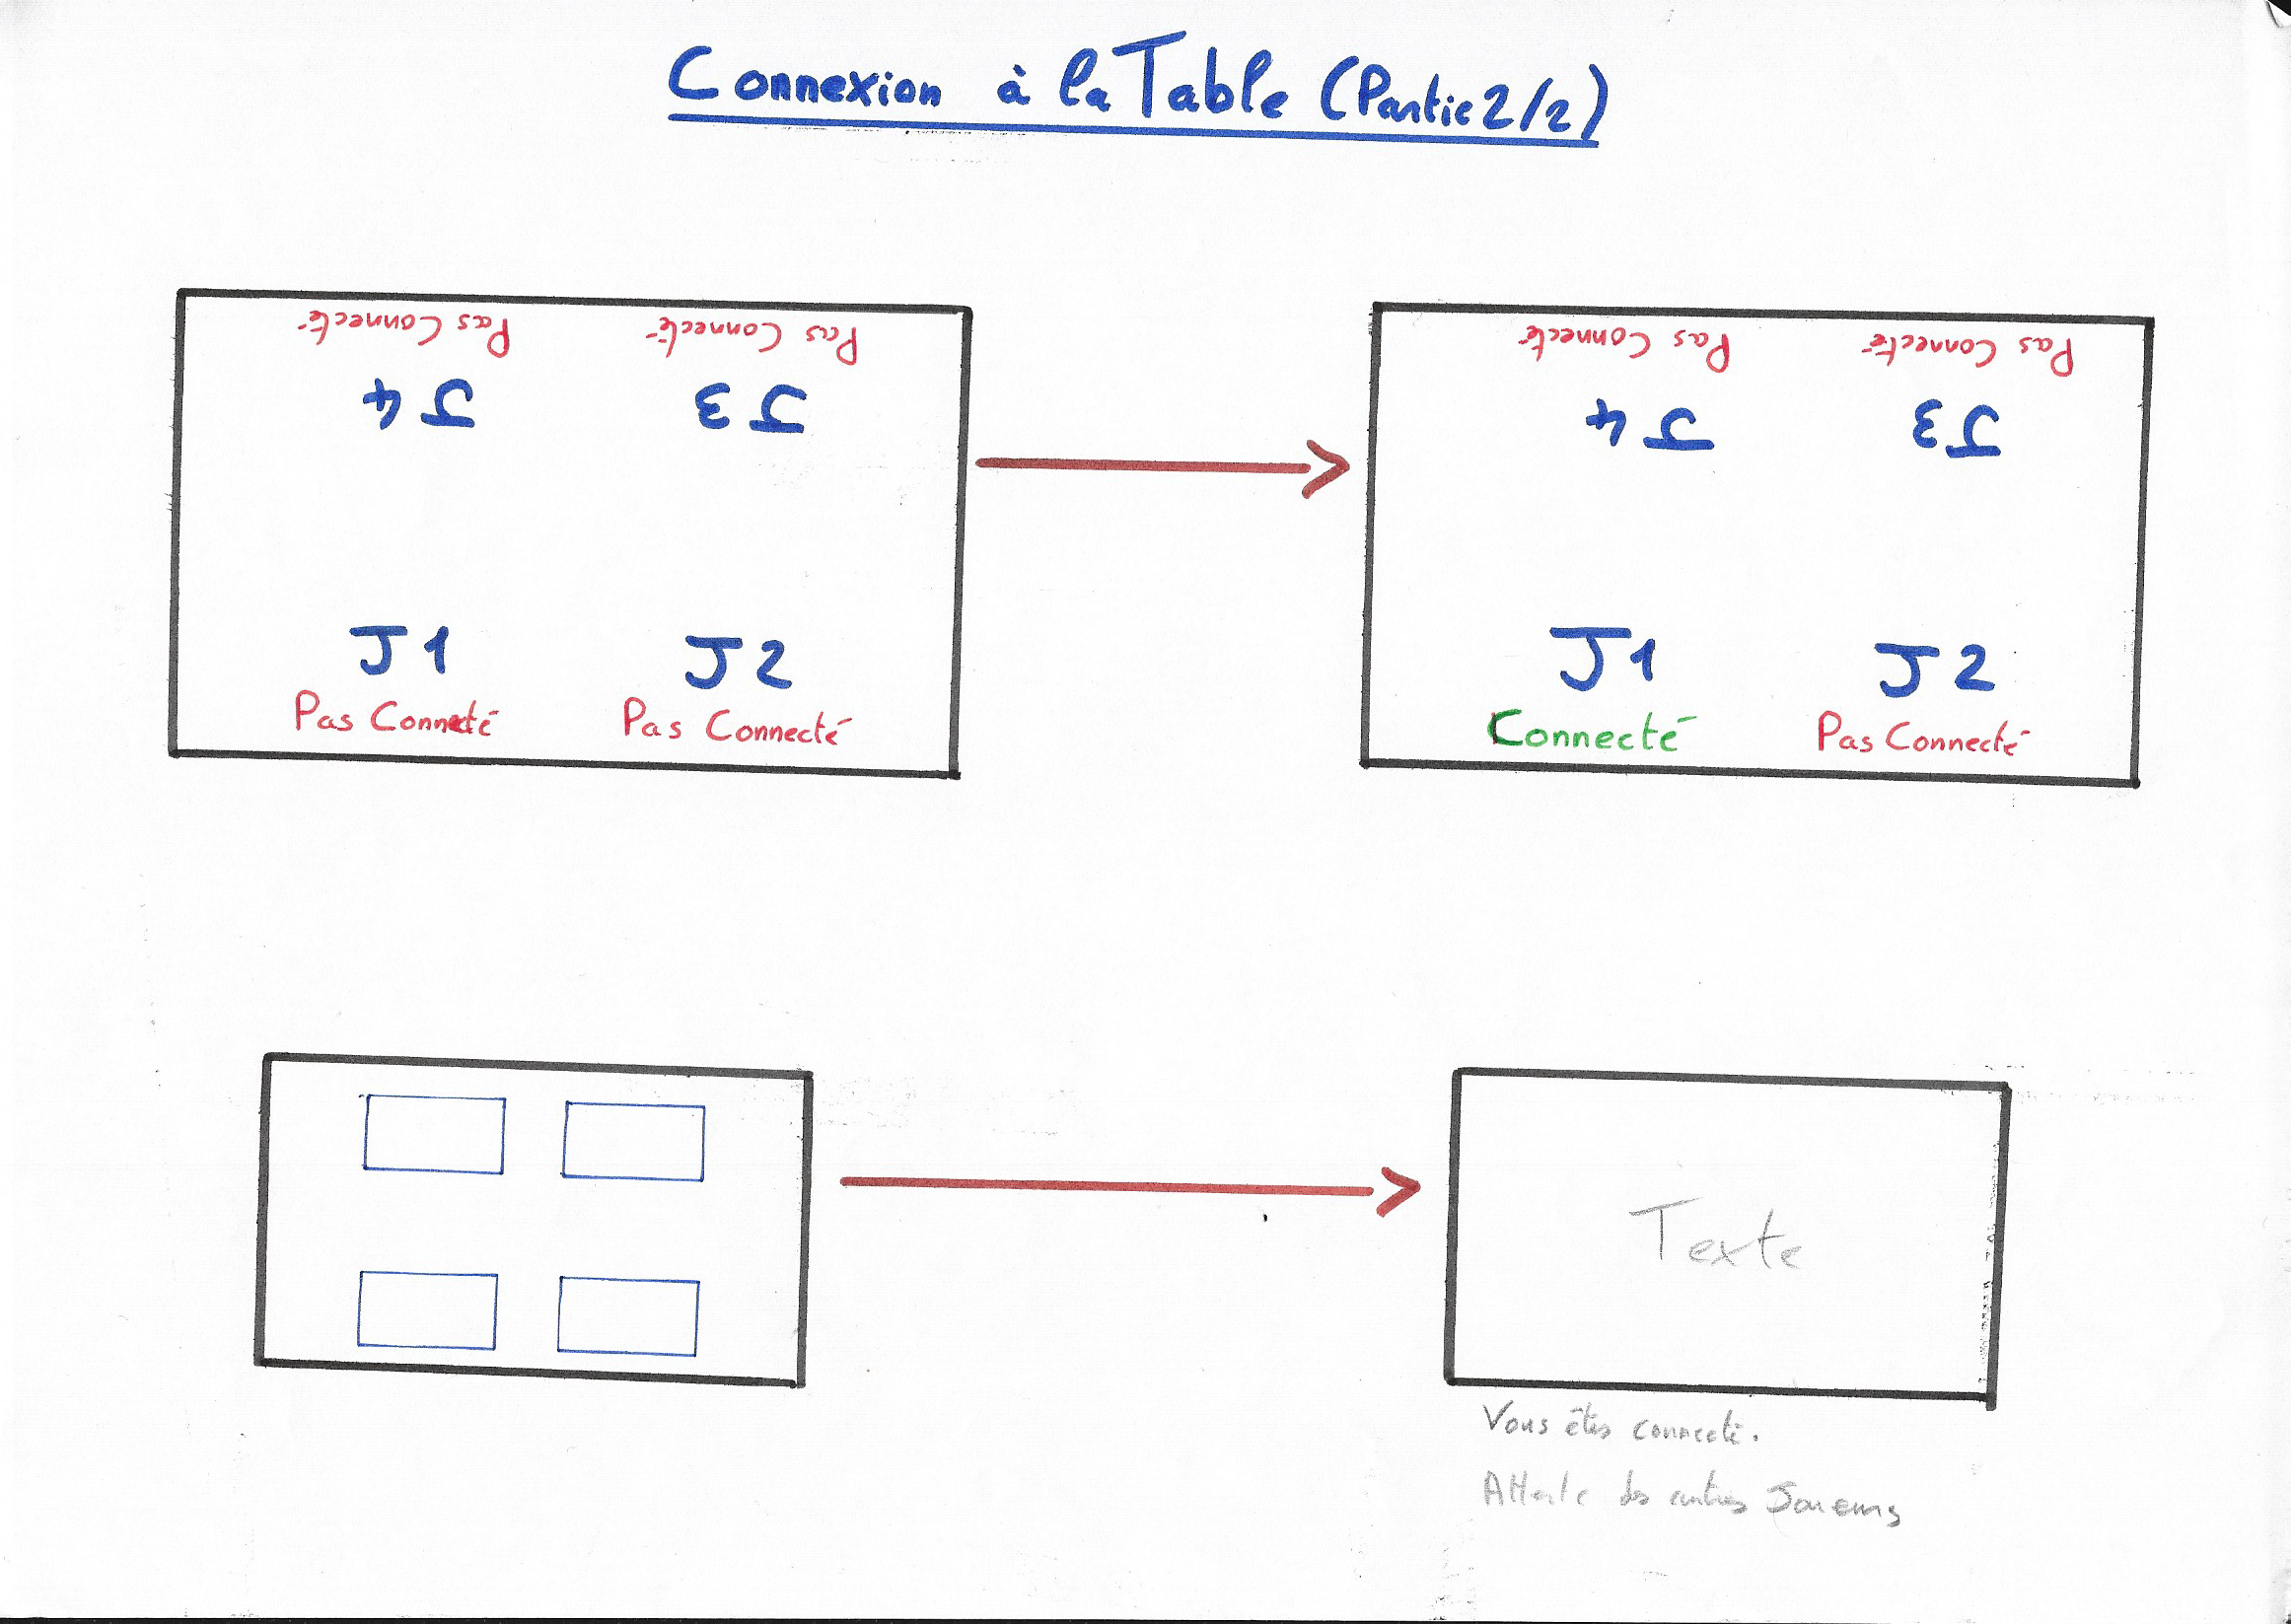 Connexion à la Table (Partie 2/2)
Pas Connecté
Pas Connecté
J4
J3
J1
J2
Pas Connecté
Pas Connecté
Pas Connecté
Pas Connecté
J4
J3
J1
J2
Connecté
Pas Connecté
Texte
Vous êtes connecté.
Attente des autres Joueurs